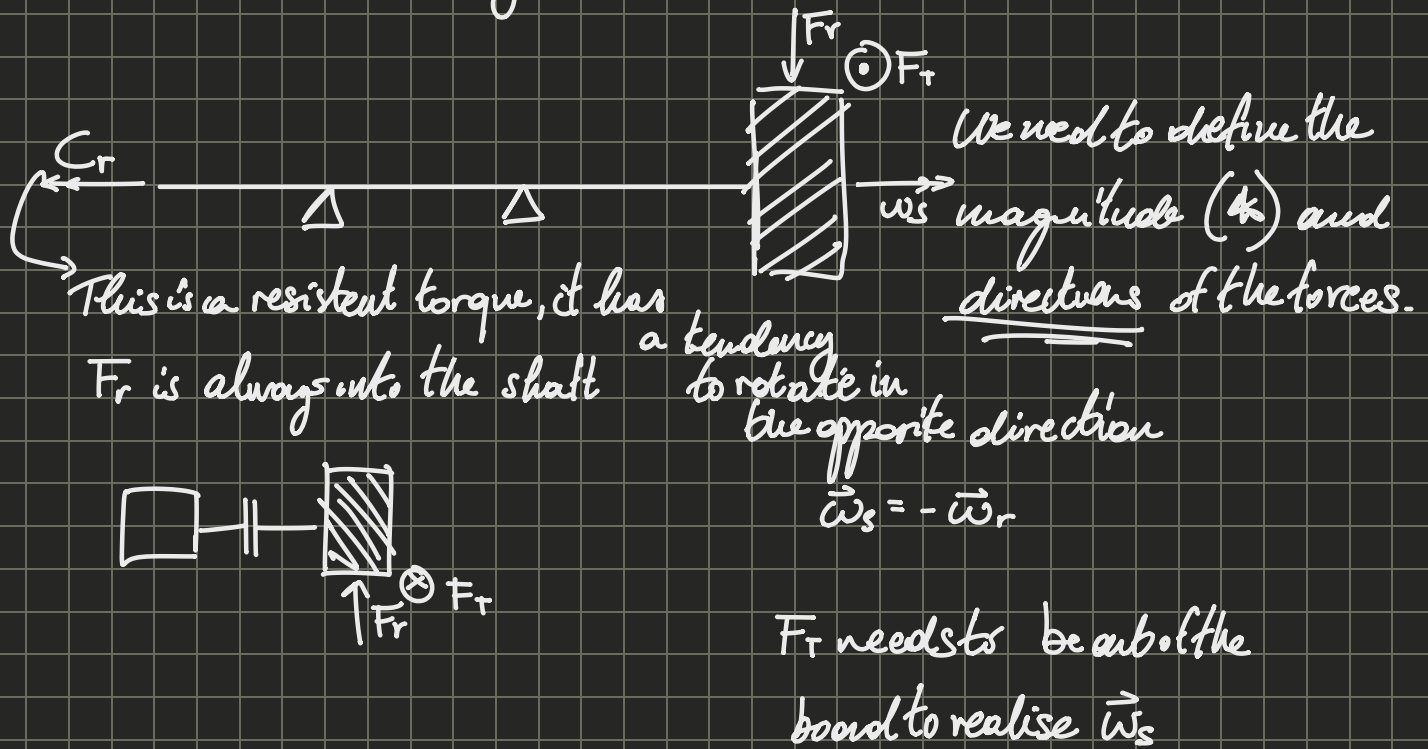 Fr
FT
We need to define the
Cr
ωs
magnitude (*) and
directions of the forces.
This is a resistent torque, it has
a tendency
to rotate in
the opporite direction
Fr is always into the shaft
ω⃗s = - ω⃗r
Fr
FT
FT needs to be out of the
board to realise ω⃗s